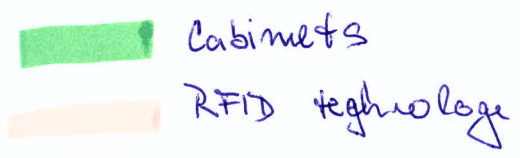 Cabinets
RFID teghnologe